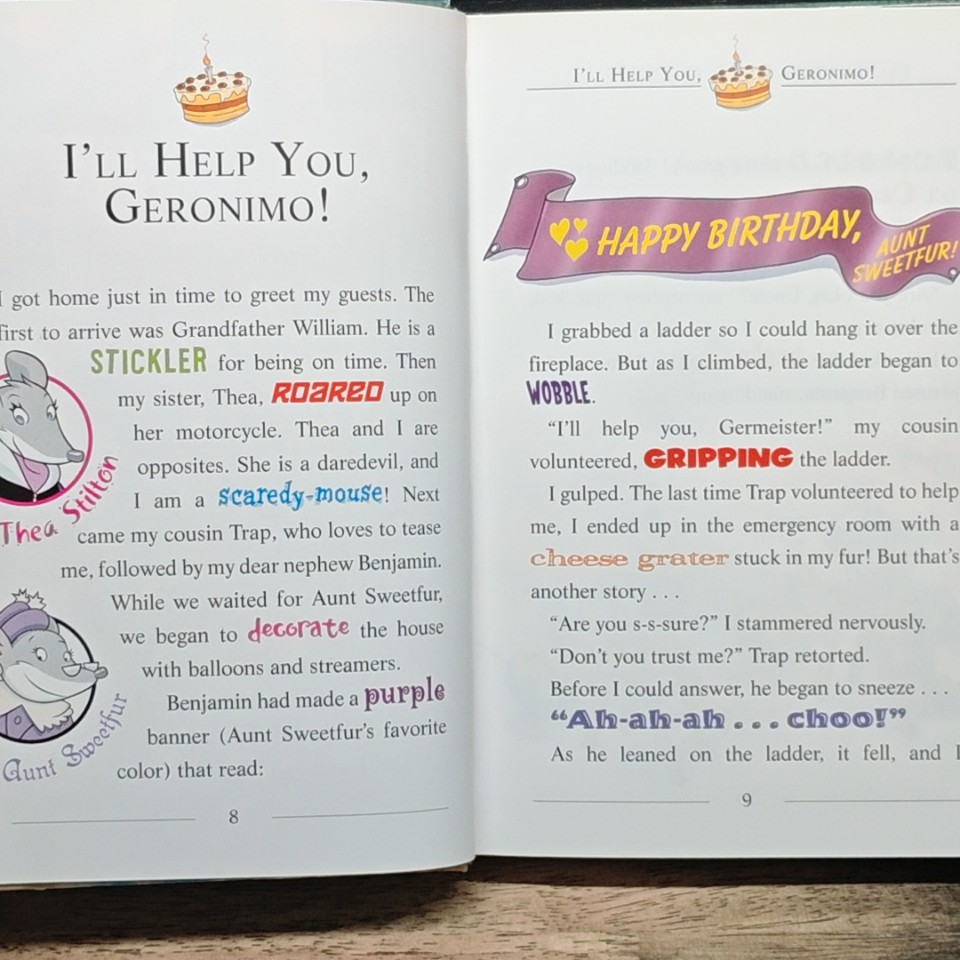 I'll Help You,
Geronimo!
I got home just in time to greet my guests. The
first to arrive was Grandfather William. He is a
STICKLER for being on time. Then
my sister, Thea, ROARED up on
her motorcycle. Thea and I are
opposites. She is a daredevil, and
I am a scaredy-mouse! Next
came my cousin Trap, who loves to tease
me, followed by my dear nephew Benjamin.
While we waited for Aunt Sweetfur,
we began to decorate the house
with balloons and streamers.
Benjamin had made a purple
banner (Aunt Sweetfur's favorite
color) that read:
Thea Stilton
Aunt Sweetfur
8
I'll Help You, Geronimo!
HAPPY BIRTHDAY,
AUNT
SWEETFUR!
I grabbed a ladder so I could hang it over the
fireplace. But as I climbed, the ladder began to
WOBBLE.
“I'll help you, Germeister!” my cousin
volunteered, GRIPPING the ladder.
I gulped. The last time Trap volunteered to help
me, I ended up in the emergency room with a
cheese grater stuck in my fur! But that's
another story . . .
“Are you s-s-sure?” I stammered nervously.
“Don't you trust me?” Trap retorted.
Before I could answer, he began to sneeze . . .
“Ah-ah-ah . . . choo!”
As he leaned on the ladder, it fell, and I
9